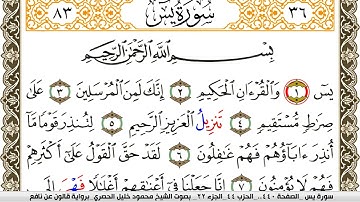 ٨٣ سورة يس ٣٦
بِسْمِ اللَّهِ الرَّحْمَٰنِ الرَّحِيمِ
يسٓ ١ وَالْقُرْءَانِ الْحَكِيمِ ٢ إِنَّكَ لَمِنَ الْمُرْسَلِينَ ٣ عَلَىٰ
صِرَٰطٍ مُّسْتَقِيمٍ ٤ تَنزِيلُ الْعَزِيزِ الرَّحِيمِ ٥ لِتُنذِرَ قَوْمًا مَّا
أُنذِرَ ءَابَآؤُهُمْ فَهُمْ غَٰفِلُونَ ٦ لَقَدْ حَقَّ الْقَوْلُ عَلَىٰٓ أَكْثَرِهِمْ
فَهُمْ لَا يُؤْمِنُونَ ٧ إِنَّا جَعَلْنَا فِىٓ أَعْنَٰقِهِمْ أَغْلَٰلًا فَهِىَ
سورة يس .. الصفحة ٤٤٠.. الحزب ٤٤ .. الجزء ٢٢ .. بصوت الشيخ محمود خليل الحصري .. برواية قالون عن نافع